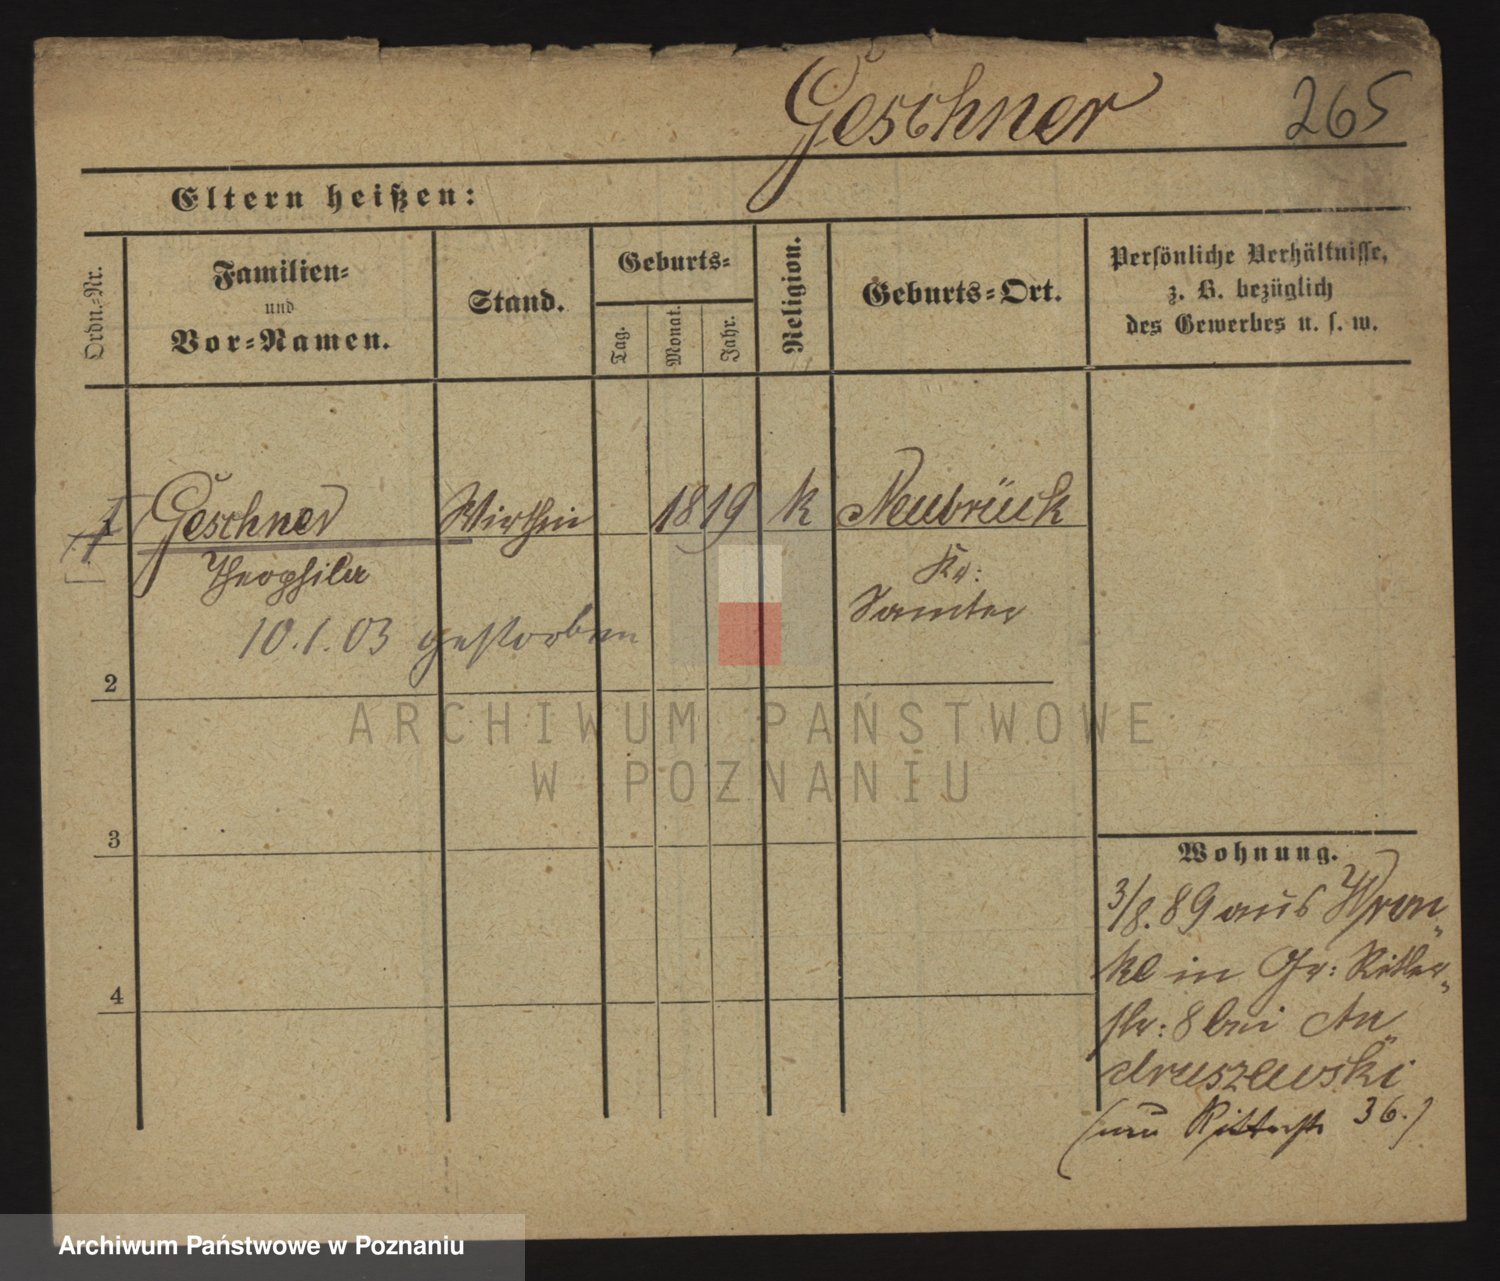 Geschner 265
Eltern heißen:
Ordn.-Nr.
Familien-
und
Vor-Namen.
Stand.
Geburts-
Tag.
Monat.
Jahr.
Religion.
Geburts-Ort.
Persönliche Verhältnisse,
z. B. bezüglich
des Gewerbes u. s. w.
1 Geschner Wirthin 1819 k Neubrück
Theophila Kr:
Samter
10.1.03 gestorben
2
ARCHIWUM PAŃSTWOWE
W POZNANIU
3
4
Wohnung.
3/8.89 aus Wron„
ke in Gr: Ritter„
str: 8 bei An„
druszewski
(nun Ritterstr 36.)
Archiwum Państwowe w Poznaniu